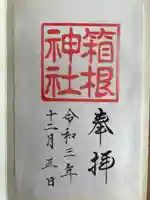 奉拝
箱根
神社
令和三年
十二月五日